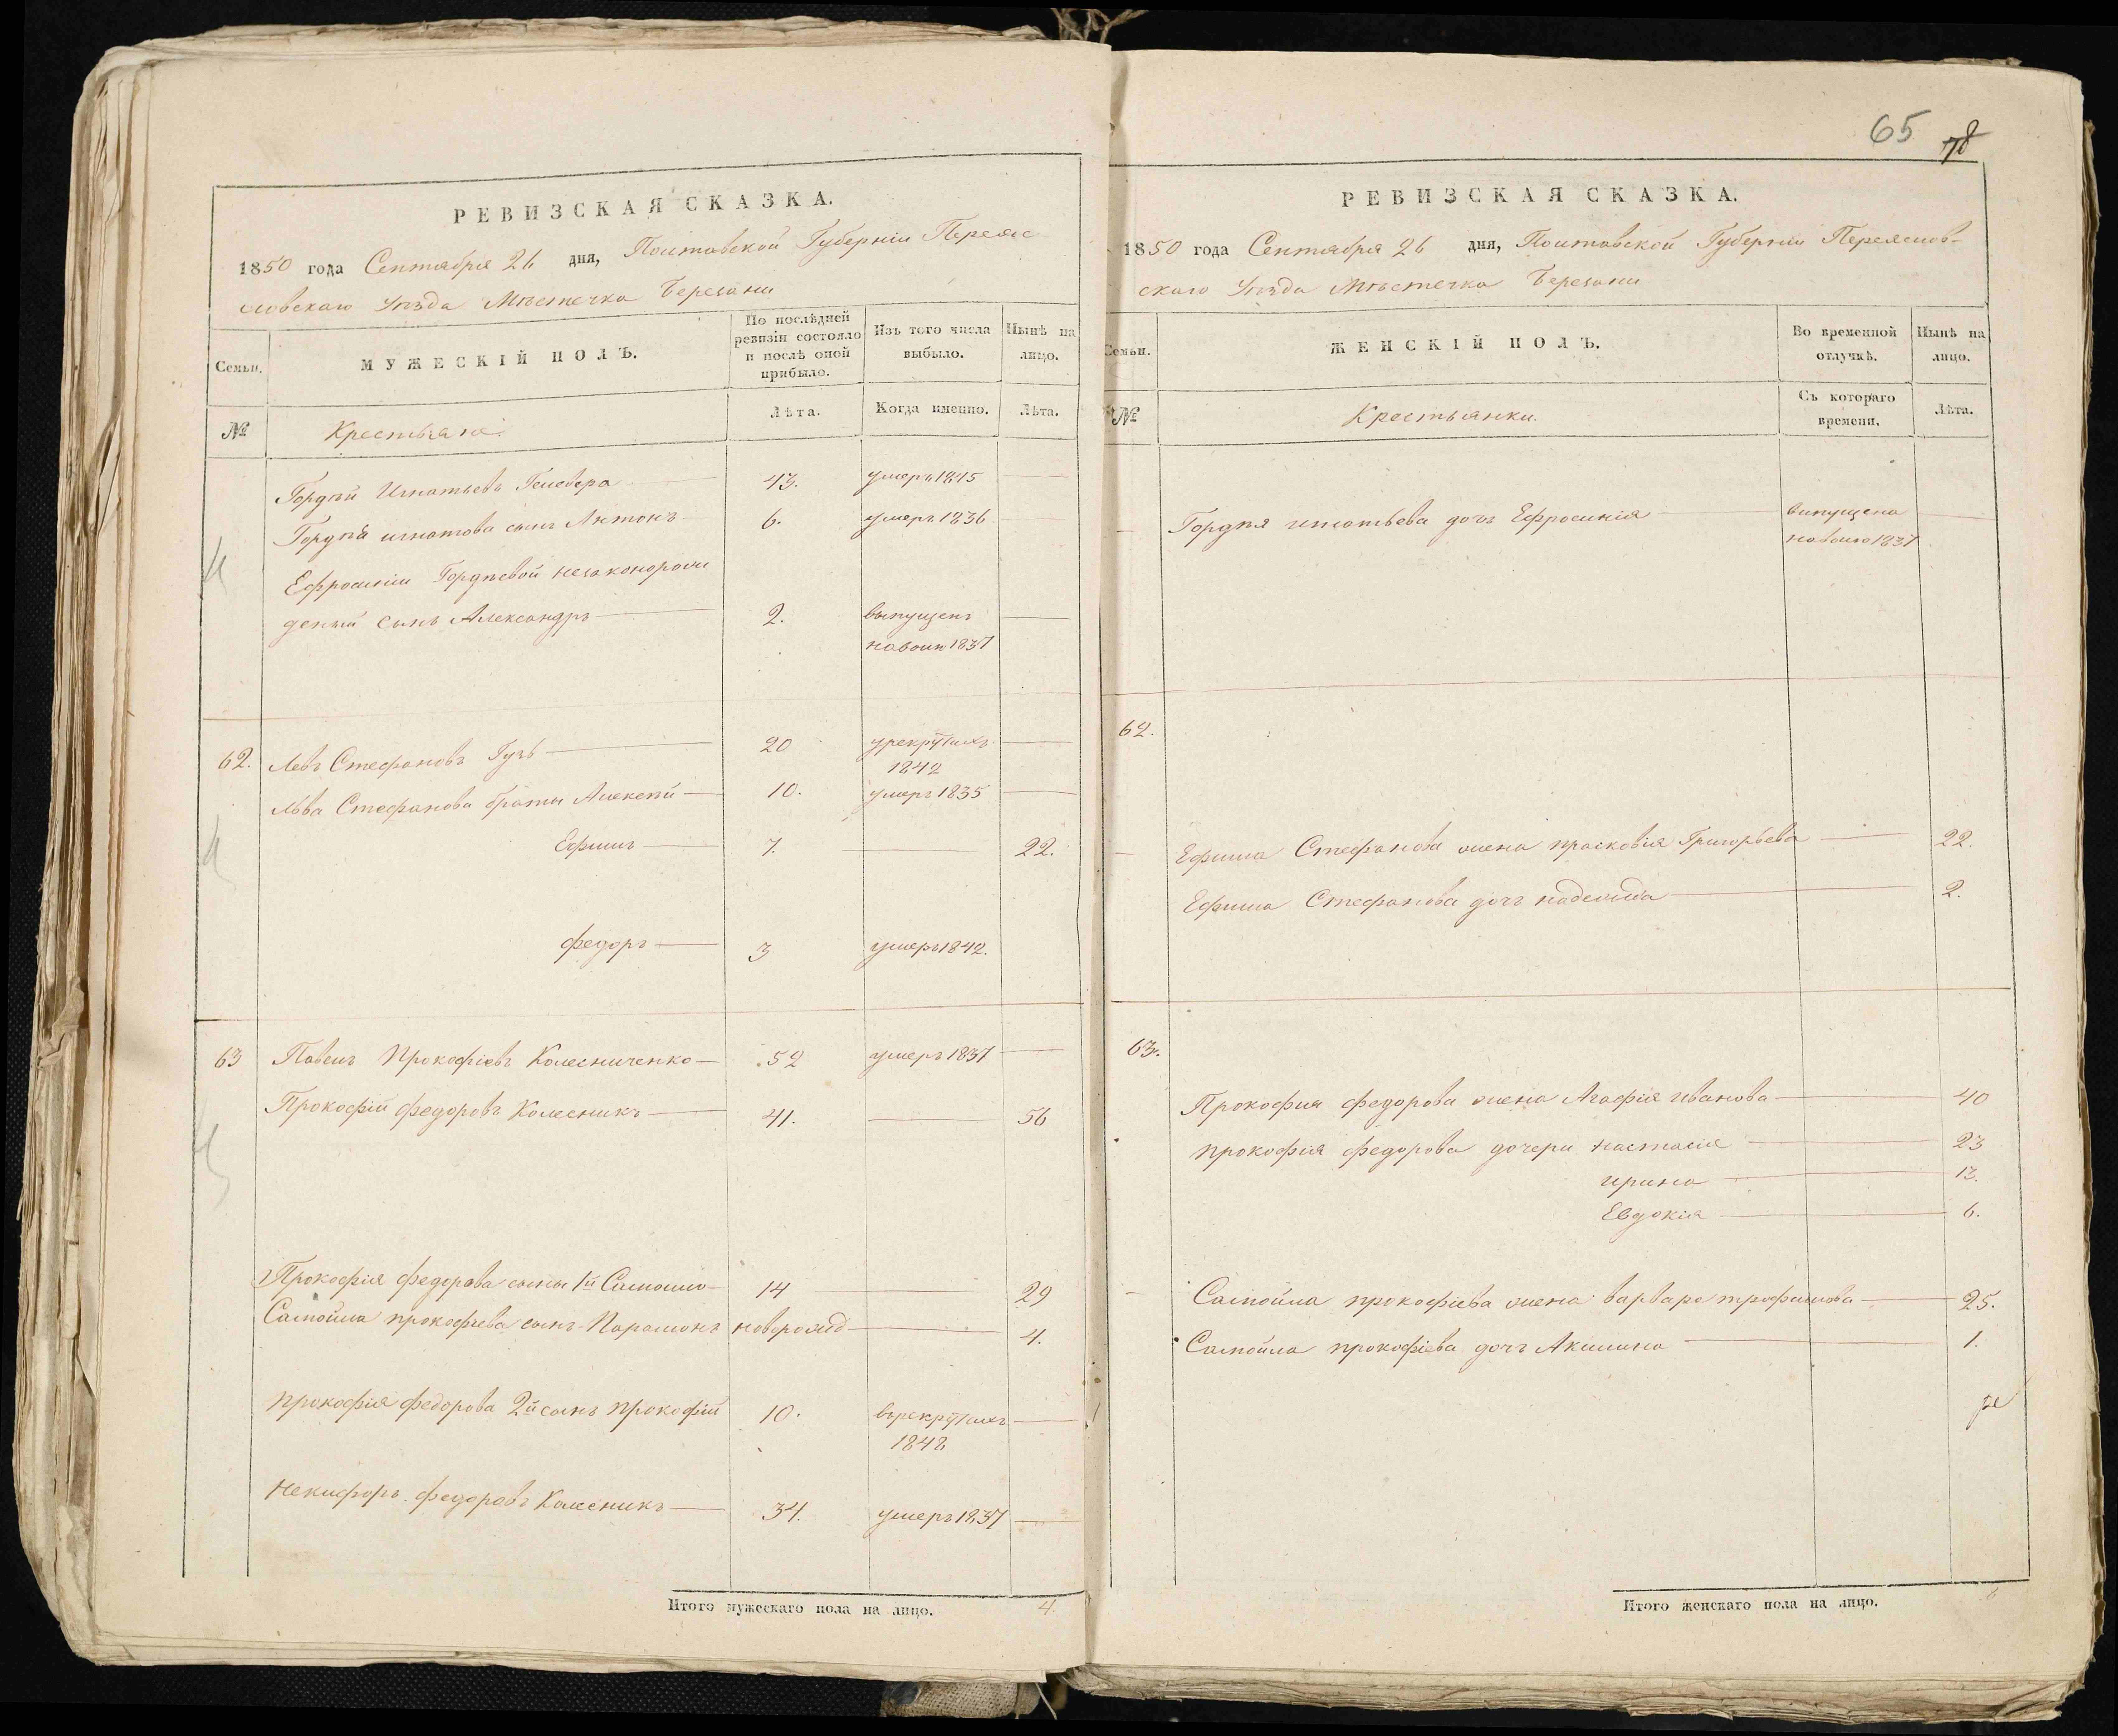 РЕВИЗСКАЯ СКАЗКА.
1850 года Сентября 26 дня, Полтавской Губерніи Переяс
ловскаго Уѣзда Мѣстечка Березани
Семьи.
МУЖЕСКІЙ ПОЛЪ.
По послѣдней
ревизіи состояло
и послѣ оной
прибыло.
Изъ того числа
выбыло.
Нынѣ на
лицо.
№
Крестьяне.
Лѣта.
Когда именно.
Лѣта.
Гордѣй Игнатьевъ 43. умеръ 1845
Гордѣя игнатова сынъ Антонъ 6. умеръ 1836
Ефросиніи Гордѣевой незаконорож
деный сынъ Александръ 2. выпущенъ
наволю 1837
62. Левъ Стефановъ Гузь 20 урекрутахъ
1842
Льва Стефанова браты Алексѣй 10. умеръ 1835
Ефимъ 7. 22.
Федоръ 3 умеръ 1842.
63 Павелъ Прокофіевъ Колесниченко 52 умеръ 1837
Прокофій Федоровъ Колесникъ 41. 56
Прокофія Федорова сыны 1й Самойло 14 29
Самойла прокофіева сынъ Парамонъ новорожд 4.
Прокофія Федорова 2й сынъ Прокофій 10. врекрутахъ
1848
Никифоръ Федоровъ Колесникъ 34. умеръ 1837
Итого мужескаго пола на лицо. 4.
65 78
РЕВИЗСКАЯ СКАЗКА.
1850 года Сентября 26 дня, Полтавской Губерніи Переяслов-
скаго Уѣзда Мѣстечка Березани
Семьи.
ЖЕНСКІЙ ПОЛЪ.
Во временной
отлучкѣ.
Нынѣ на
лицо.
№
Крестьянки.
Съ котораго
времени.
Лѣта.
Гордѣя игнатьева дочь Ефросинія выпущена
наволю 1837
62.
Ефима Стефанова жена прасковія Григорьева 22.
Ефима Стефанова дочь надежда 2.
63.
Прокофия Федорова жена Агафія иванова 40
Прокофія Федорова дочери настасія 23
ирина 13.
Евдокія 6.
Самойла прокофіева жена варвара трофимова 25.
Самойла прокофіева дочь Акилина 1.
Итого женскаго пола на лицо.